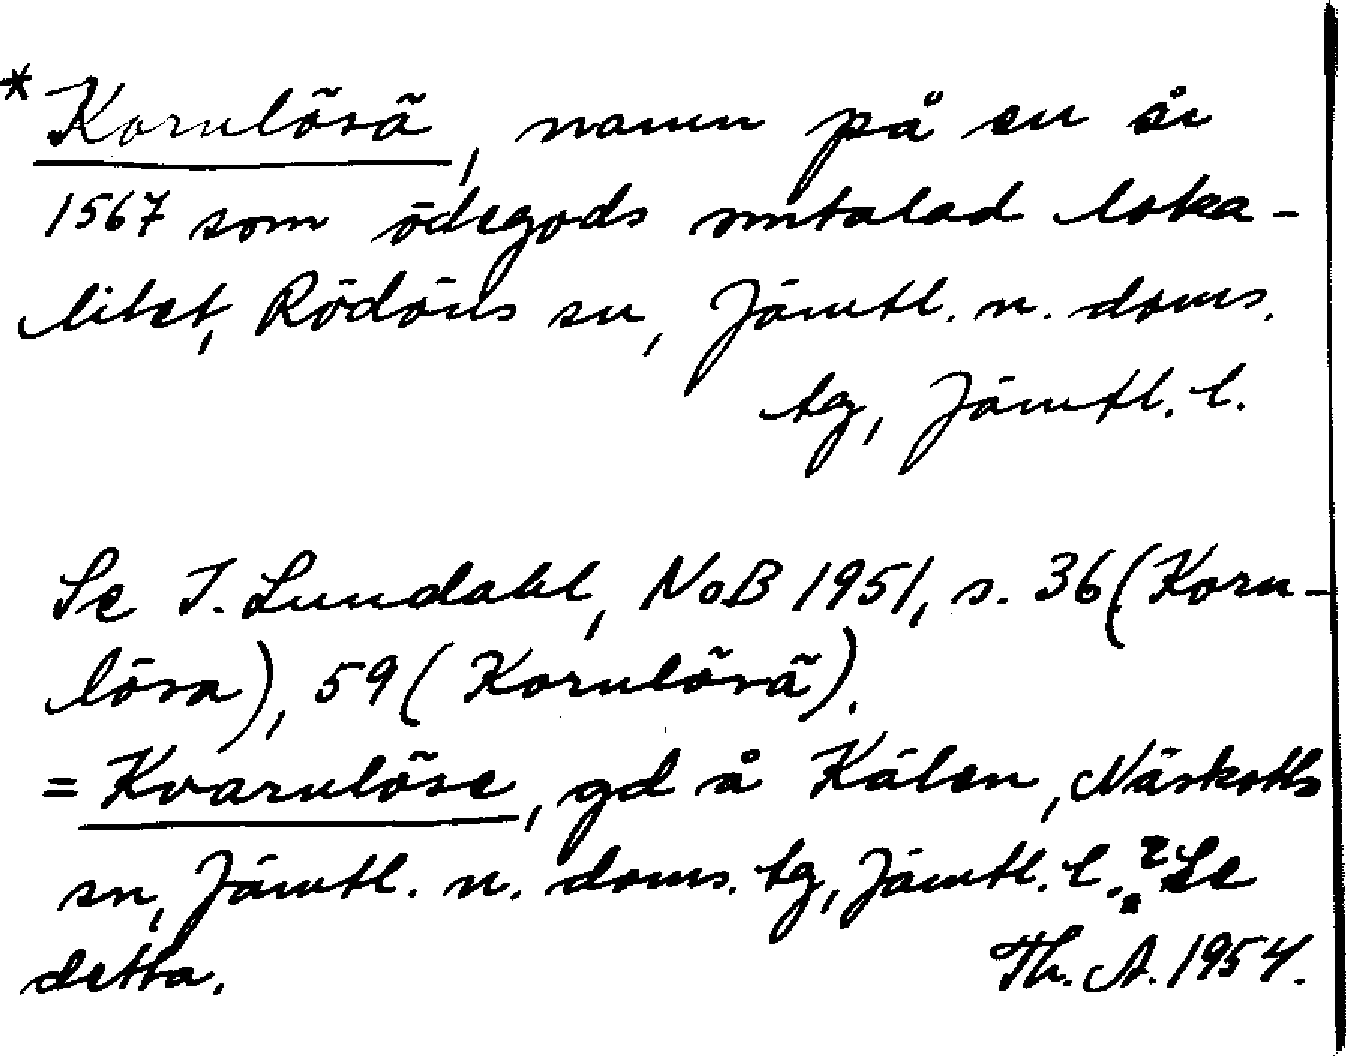 *Kornlösä, namn på en år
1567 som ödegods omtalad loka-
litet, Rödöns sn, Jämtl. n. doms.
tg, Jämtl. l.
Se I. Lundahl, NoB 1951, s. 36 (Korn-
lösa), 59 (Kornlösä).
= Kvarnlöse, gd å Kälen, Näskotts
sn, Jämtl. n. doms. tg, Jämtl. l.? Se
detta.
Th. A. 1954.